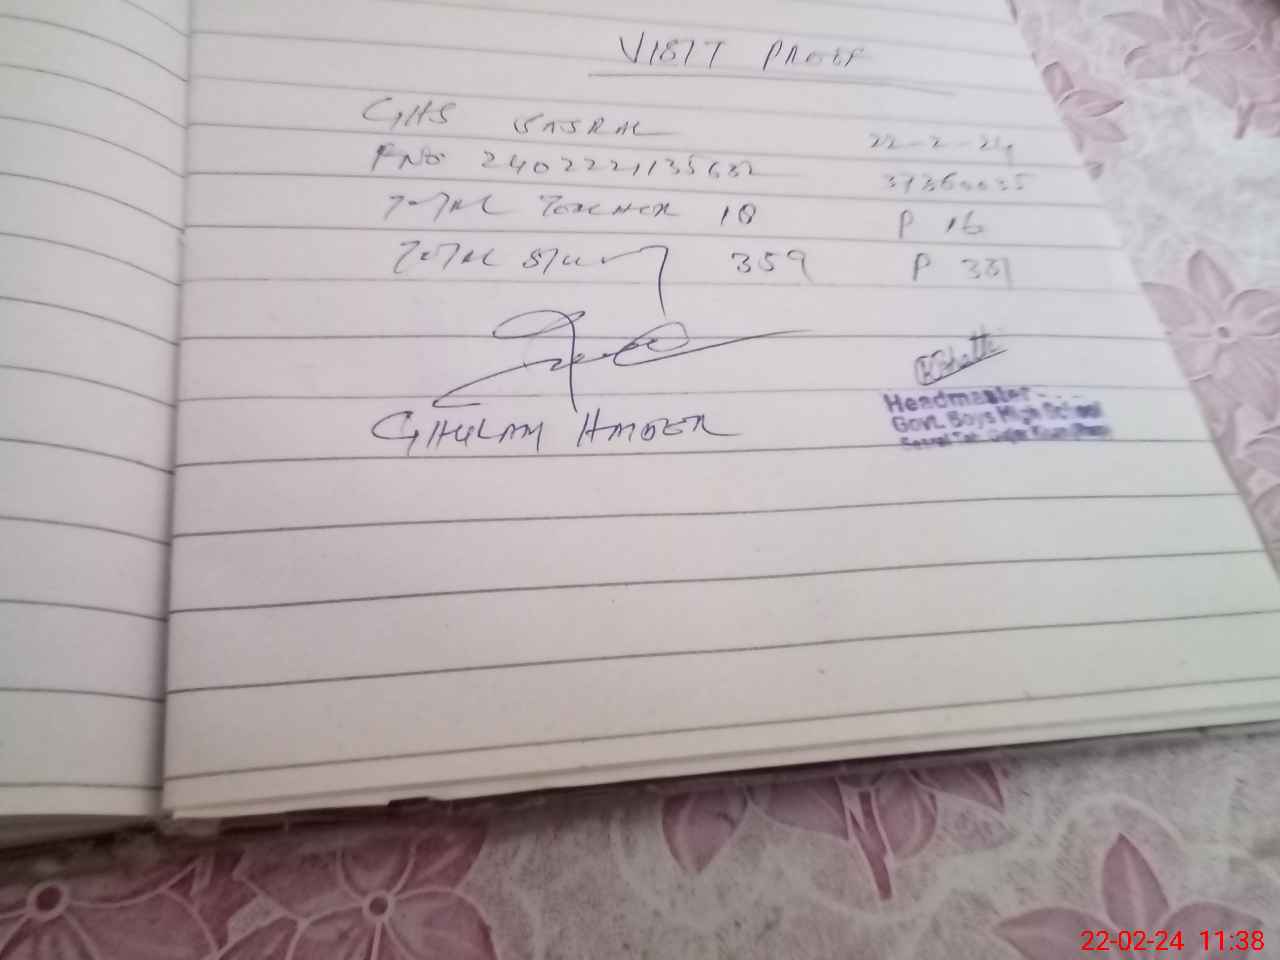 VISIT PROOF
GHS SASRAL 22-2-24
FNO 2402221135632 37360035
TOTAL TEACHER 18 P 16
TOTAL 359 P 331
GHULAM HAIDER
Headmaster
Govt. Boys High School
22-02-24 11:38